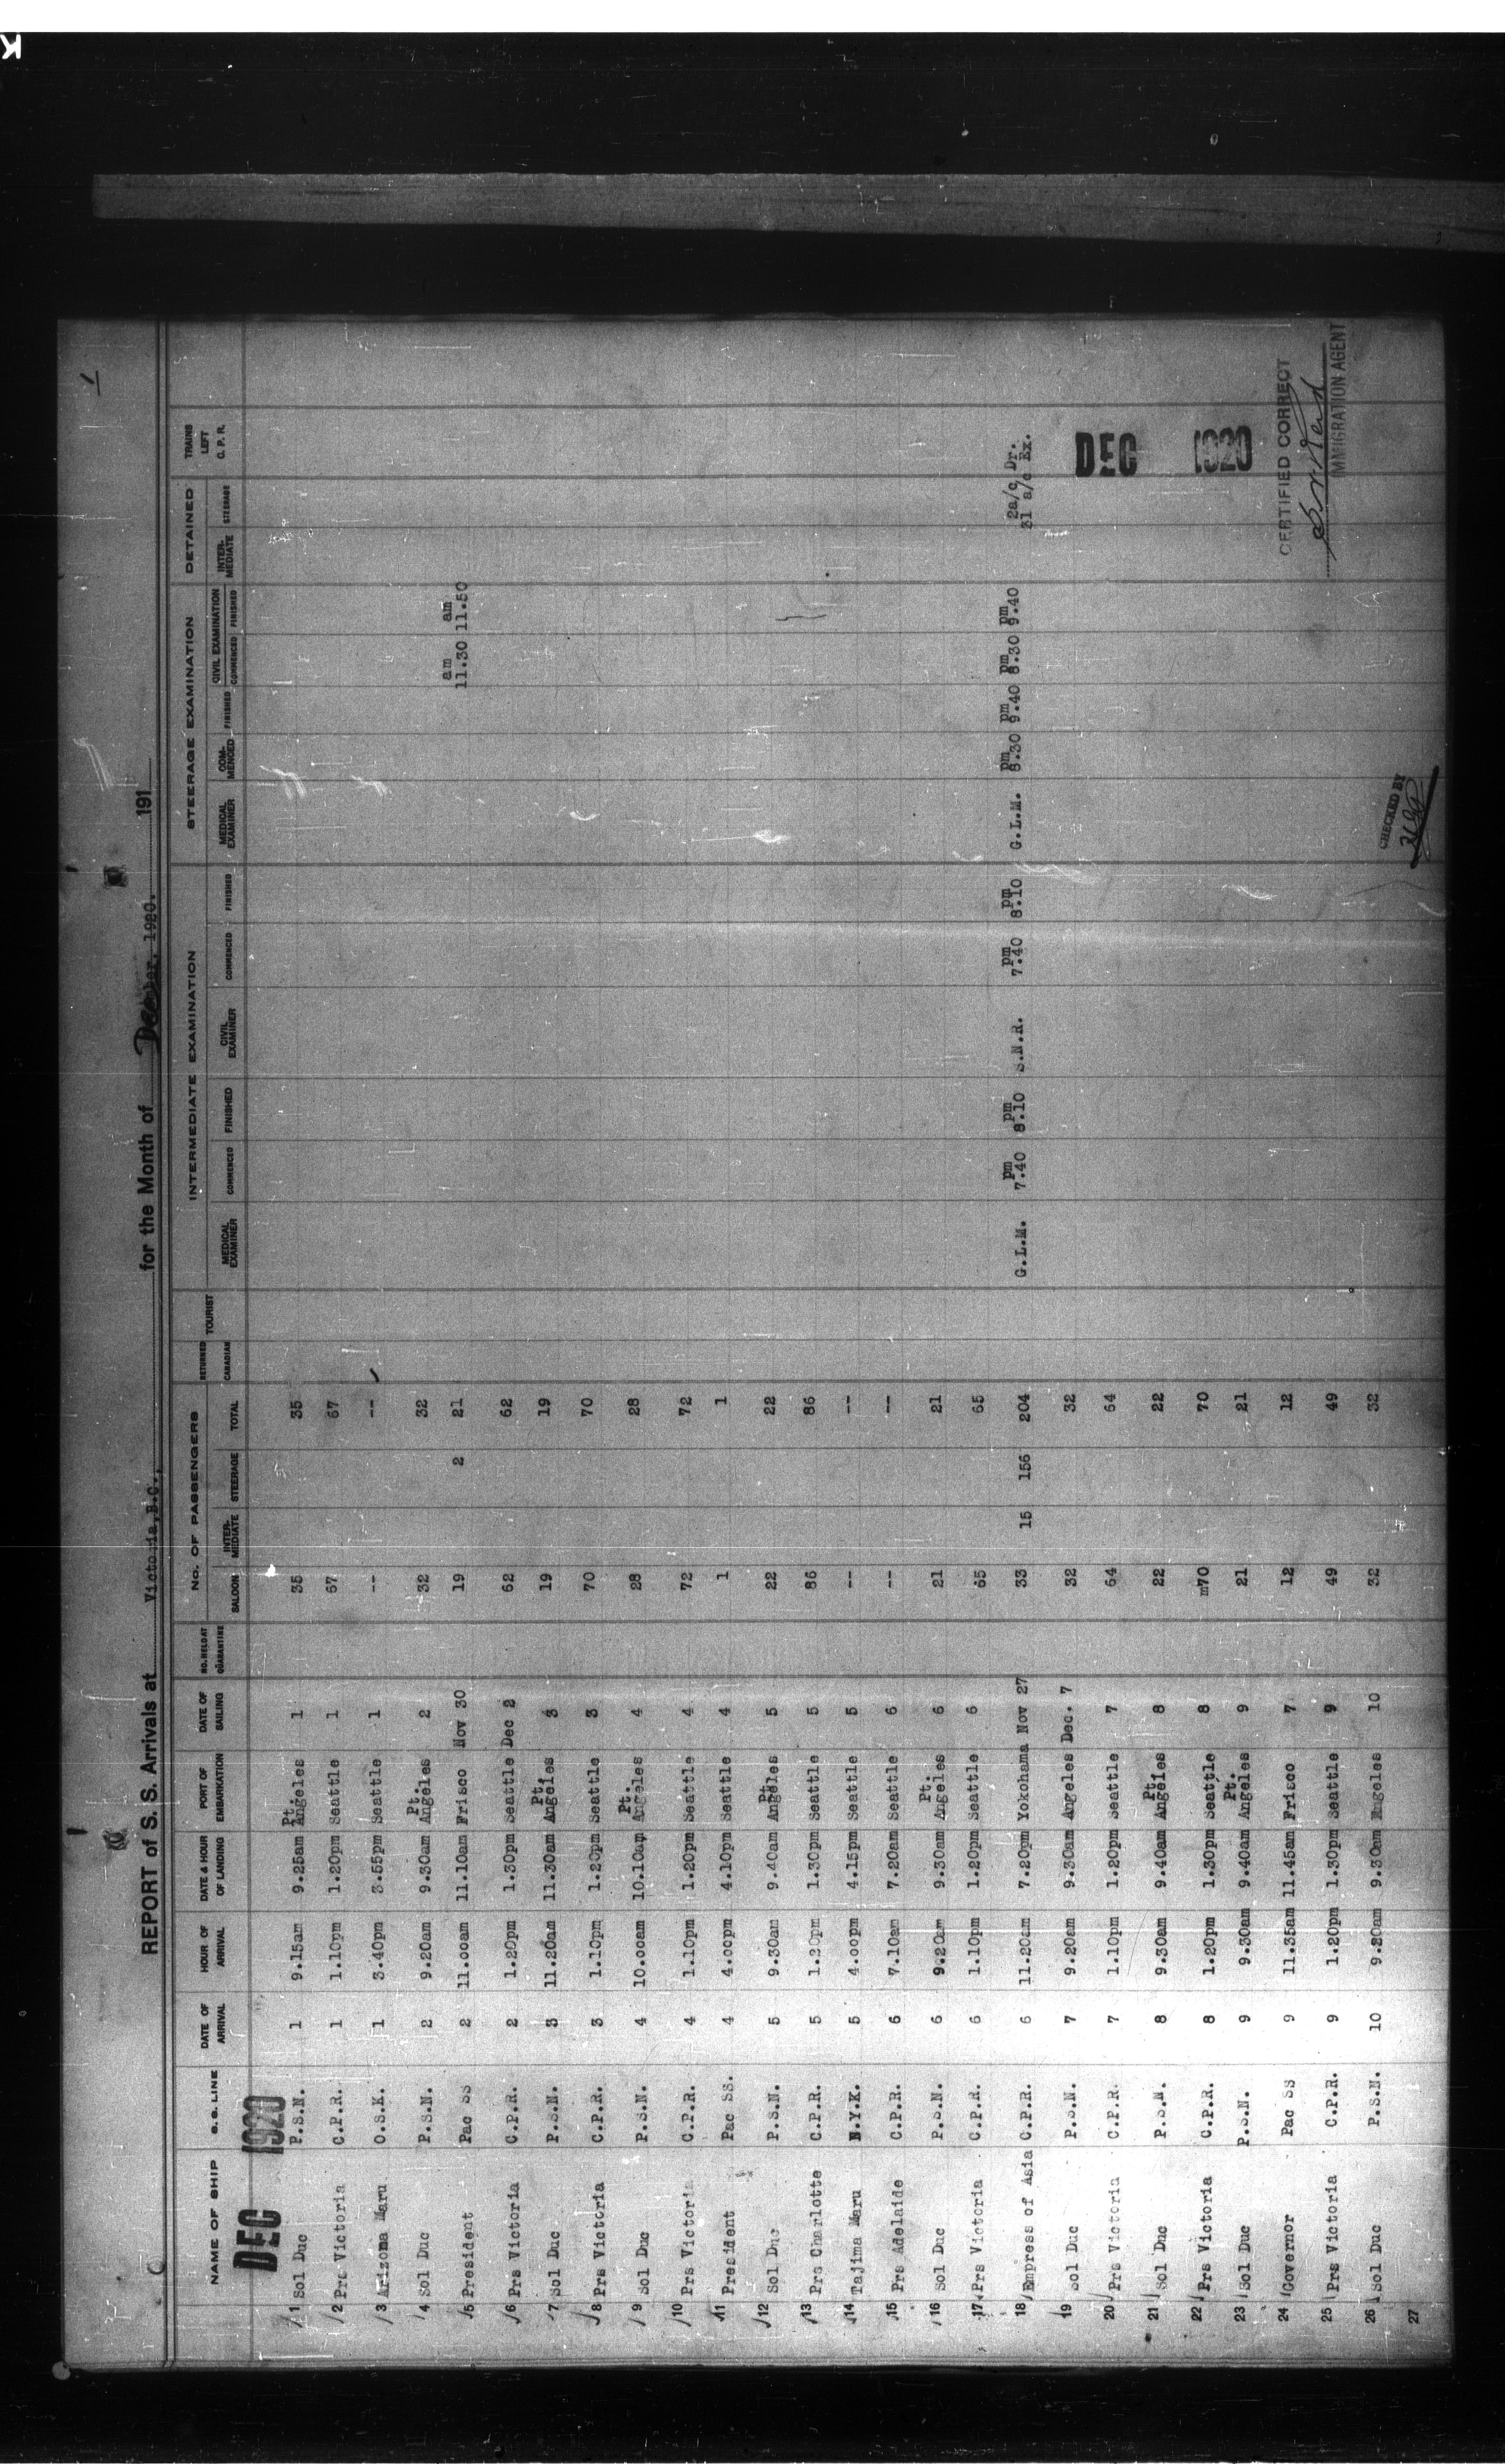 REPORT of S. S. Arrivals at Victoria, B.C., for the Month of December. 1920. 191
NAME OF SHIP S. S. LINE DATE OF ARRIVAL HOUR OF ARRIVAL DATE & HOUR OF LANDING PORT OF EMBARKATION DATE OF SAILING NO. HELD AT QUARANTINE No. OF PASSENGERS SALOON INTER-MEDIATE STEERAGE TOTAL RETURNED CANADIAN TOURIST INTERMEDIATE EXAMINATION MEDICAL EXAMINER COMMENCED FINISHED CIVIL EXAMINER COMMENCED FINISHED STEERAGE EXAMINATION MEDICAL EXAMINER COM-MENCED FINISHED CIVIL EXAMINATION COMMENCED FINISHED DETAINED INTER-MEDIATE STEERAGE TRAINS LEFT C. P. R.
DEC 1920
1 Sol Duc P.S.N. 1 9.15am 9.25am Pt. Angeles 1 35 35
2 Prs Victoria C.P.R. 1 1.10pm 1.20pm Seattle 1 67 67
3 Arizona Maru O.S.K. 1 3.40pm 3.55pm Seattle 1 -- --
4 Sol Duc P.S.N. 2 9.20am 9.30am Pt. Angeles 2 32 32
5 President Pac SS 2 11.00am 11.10am Frisco Nov 30 19 2 21 am 11.30 am 11.50
6 Prs Victoria C.P.R. 2 1.20pm 1.30pm Seattle Dec 2 62 62
7 Sol Duc P.S.N. 3 11.20am 11.30am Pt. Angeles 3 19 19
8 Prs Victoria C.P.R. 3 1.10pm 1.20pm Seattle 3 70 70
9 Sol Duc P.S.N. 4 10.00am 10.10am Pt. Angeles 4 28 28
10 Prs Victoria C.P.R. 4 1.10pm 1.20pm Seattle 4 72 72
11 President Pac SS. 4 4.00pm 4.10pm Seattle 4 1 1
12 Sol Duc P.S.N. 5 9.30am 9.40am Pt. Angeles 5 22 22
13 Prs Charlotte C.P.R. 5 1.20pm 1.30pm Seattle 5 86 86
14 Tajima Maru N.Y.K. 5 4.00pm 4.15pm Seattle 5 -- --
15 Prs Adelaide C.P.R. 6 7.10am 7.20am Seattle 6 -- --
16 Sol Duc P.S.N. 6 9.20am 9.30am Pt. Angeles 6 21 21
17 Prs Victoria C.P.R. 6 1.10pm 1.20pm Seattle 6 65 65
18 Empress of Asia C.P.R. 6 11.20am 7.20pm Yokohama Nov 27 33 15 156 204 G.L.M. pm 7.40 pm 8.10 S.N.R. pm 7.40 pm 8.10 G.L.M. pm 8.30 pm 9.40 pm 8.30 pm 9.40 2a/c Dr. 31 a/c Ex.
19 Sol Duc P.S.N. 7 9.20am 9.30am Angeles Dec. 7 32 32
20 Prs Victoria C.P.R. 7 1.10pm 1.20pm Seattle 7 64 64
21 Sol Duc P.S.N. 8 9.30am 9.40am Pt. Angeles 8 22 22
22 Prs Victoria C.P.R. 8 1.20pm 1.30pm Seattle 8 m70 70
23 Sol Duc P.S.N. 9 9.30am 9.40am Pt. Angeles 9 21 21
24 Governor Pac SS 9 11.35am 11.45am Frisco 7 12 12
25 Prs Victoria C.P.R. 9 1.20pm 1.30pm Seattle 9 49 49
26 Sol Duc P.S.N. 10 9.20am 9.30am Angeles 10 32 32
27
DEC 1920
CERTIFIED CORRECT
IMMIGRATION AGENT
CHECKED BY